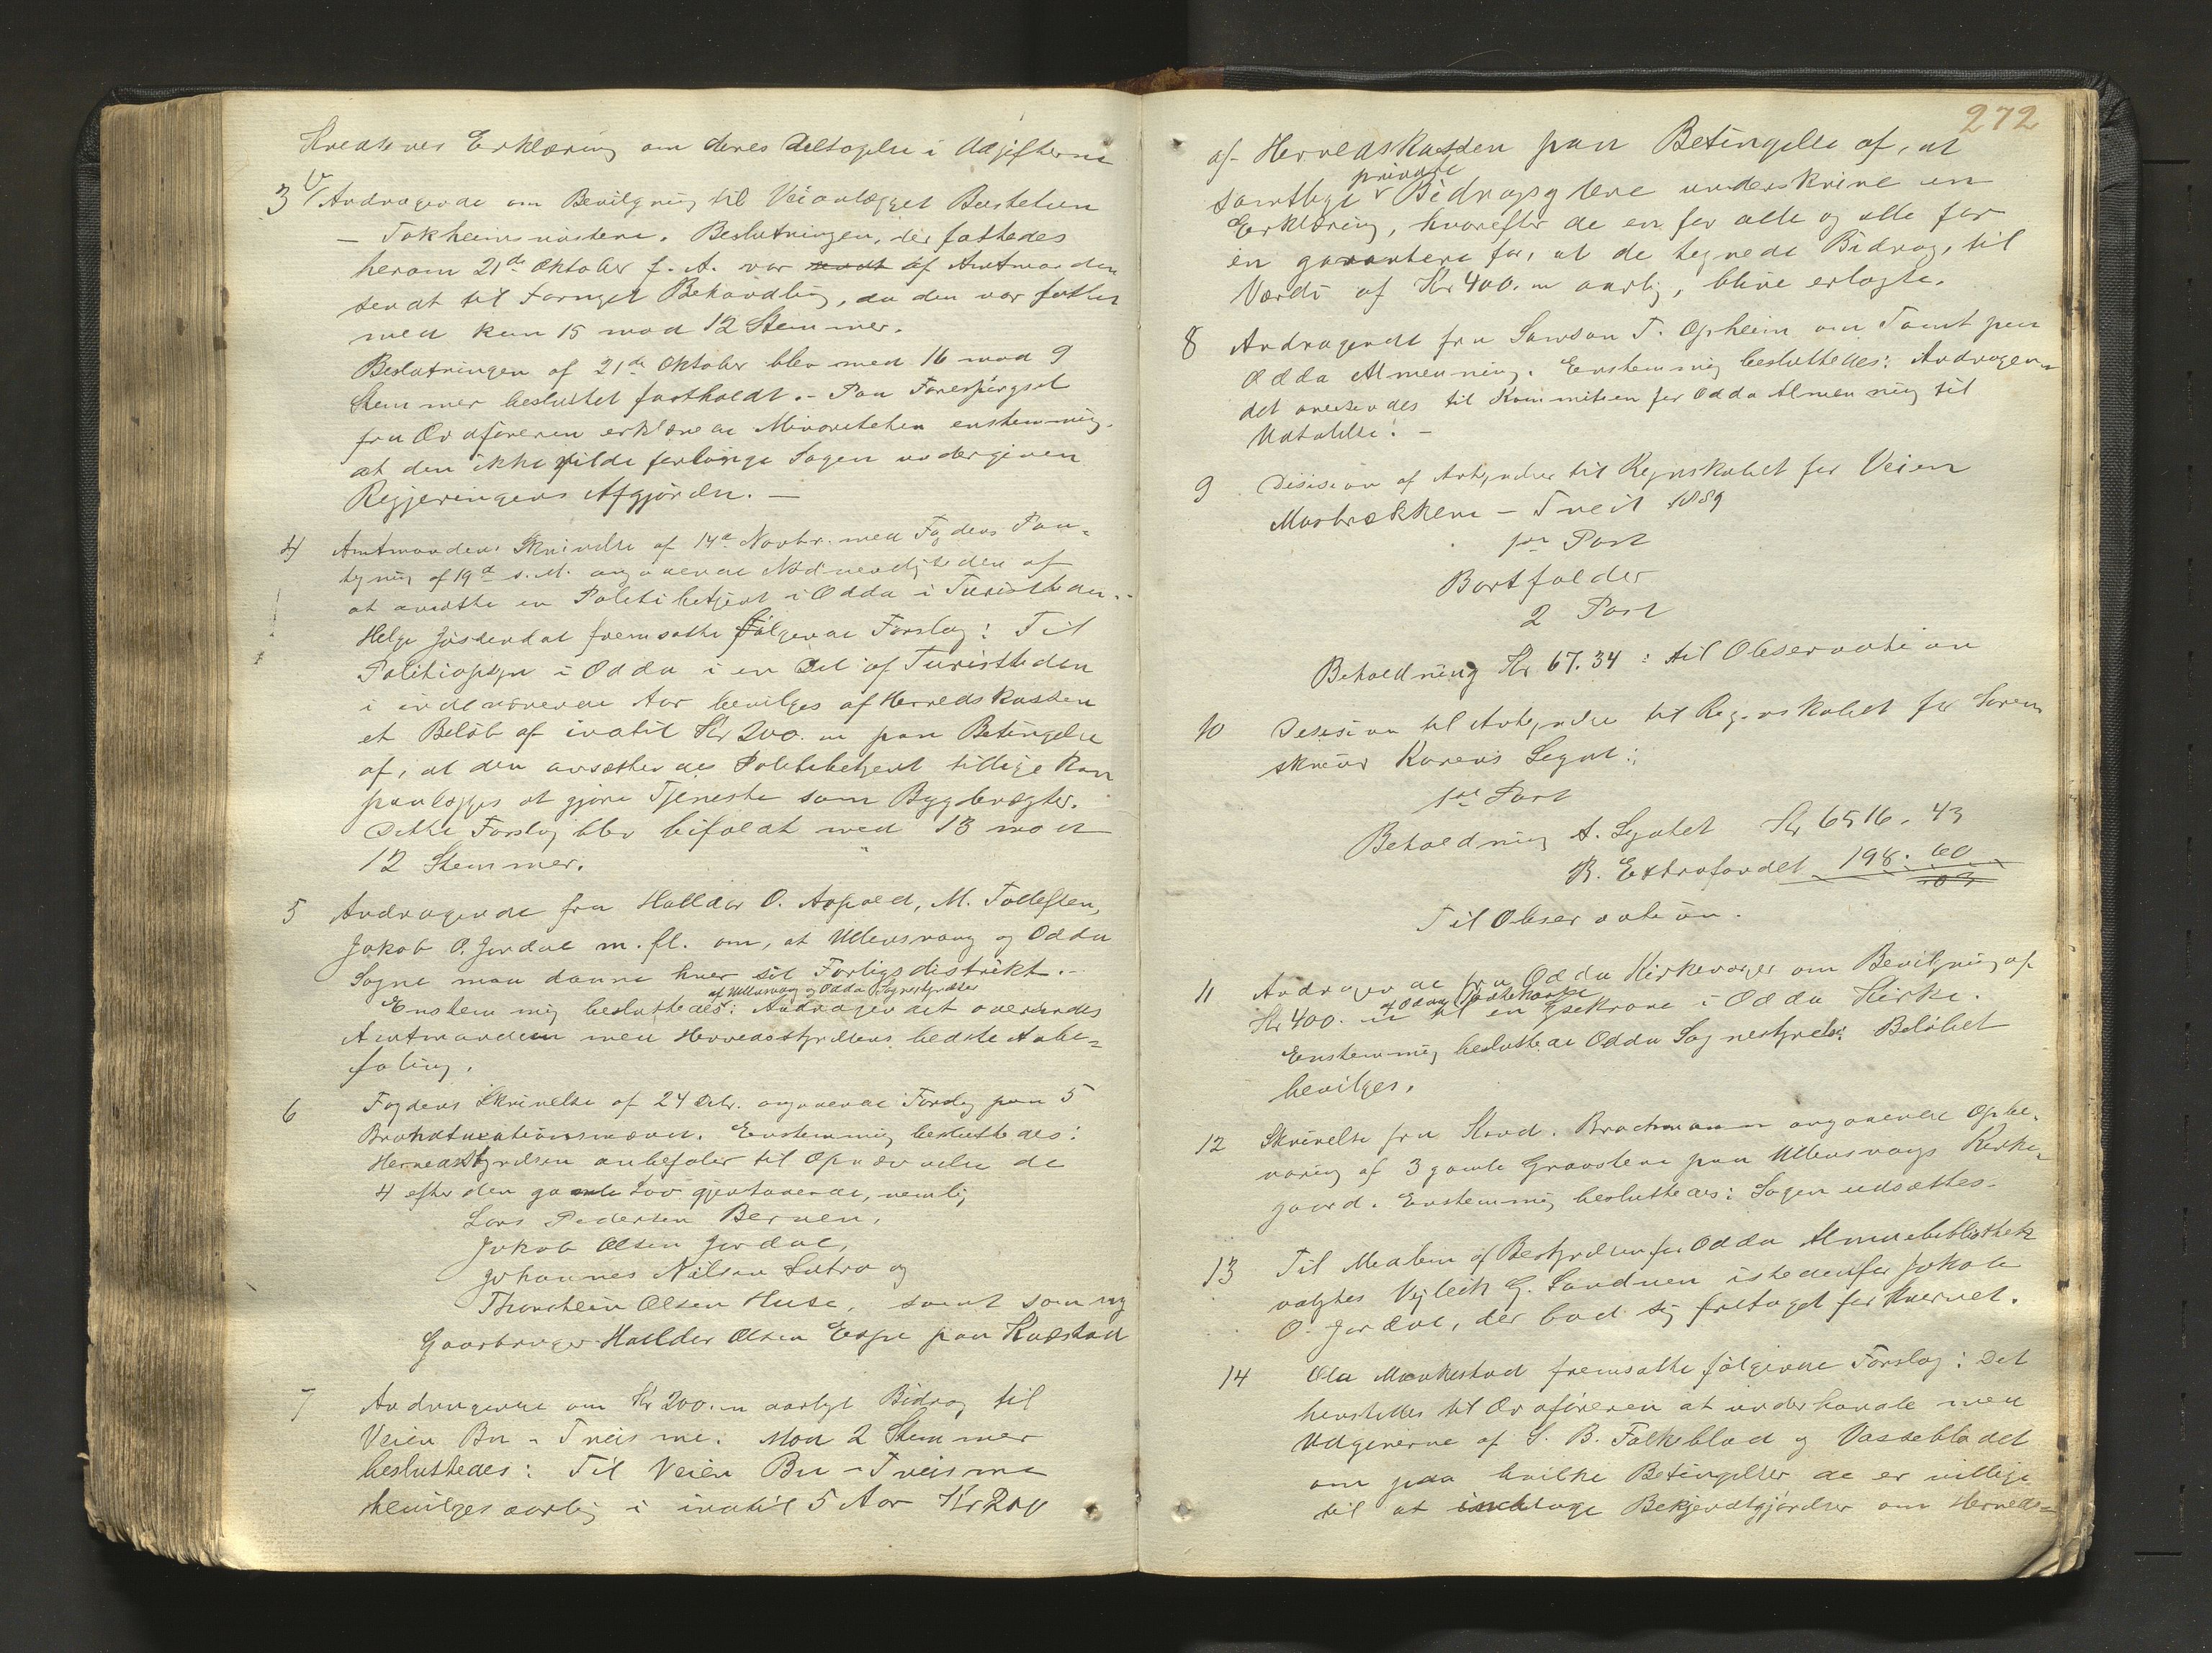 Kredsenes Erklæring om deres Deltagelse i Udgifterne
3 Andragende om Bevilgning til Veianlægget Bustetun
– Tokheimsnöstene. Beslutningen, der fattedes
herom 21de Oktober f. A. var sendt af Amtmanden
sendt til fornyet Behandling, da den var fattet
med kun 15 mod 12 Stemmer.
Beslutningen af 21de Oktober blev med 16 mod 9
Stemmer besluttet fastholdt. – Paa Forespörgsel
fra Ordföreren erklærede Minoriteten enstemmig,
at den ikke vilde forlange Sagen undergiven
Regjeringens Afgjörelse. –
4 Amtmandens Skrivelse af 14de Novbr. med Fogdens Paa-
tegning af 19de s. M. angaaende Nödvendigheden af
at ansætte en Politibetjent i Odda i Turisttiden. –
Helge Jösendal fremsatte fölgende Forslag: Til
Politiopsyn i Odda i en Del af Turisttiden
i indeværende Aar bevilges af Herredskassen
et Belöb af indtil Kr 200.00 paa Betingelse
af, at den ansættendes Politibetjent tillige kan
paalægges at gjöre Tjeneste som Bygdevægter.
Dette Forslag blev bifaldt med 13 mod
12 Stemmer.
5 Andragende fra Halldor O. Aspaal, M. Tollefsen,
Jakob O. Jordal m. fl. om, at Ullensvang og Odda
Sogne maa danne hver sit Forligsdistrikt. –
af Ullensvang og Odda Sognestyrelser
Enstemmig besluttedes: Andragendet oversendes
Amtmanden med Herredsstyrelsens bedste Anbe-
faling.
6 Fogdens Skrivelse af 24 Debr. angaaende Forslag paa 5
Brandtaxationsmænd. Enstemmig besluttedes:
Herredsstyrelsen anbefaler til Opnævnelse de
4 efter den gamle Lov gjenstaaende, nemlig
Lars Pedersen Bernen,
Jakob Olsen Jordal,
Johannes Nilsen Lutro og
Thorstein Olsen Huse, samt som ny
Gaardbruger Halldor Olsen Espe paa Kvæstad
7 Andragende om Kr 200.00 aarligt Bidrag til
Veien Bu – Treisme. Mod 2 Stemmer
besluttedes: Til Veien Bu – Treisme
bevilges aarlig i indtil 5 Aar Kr 200
272
af Herredskassen paa Betingelse af, at
private
samtlige Bidragsydere underskrive en
Erklæring, hvorefter de en for alle og alle for
en garantere for, at de tegnede Bidrag, til
Værdi af Kr 400.00 aarlig, blive erlagte.
8 Andragende fra Samson T. Opheim om Tomt paa
Odda Almenning. Enstemmig besluttedes: Andragen-
det oversendes til Kommiteen for Odda Almenning til
Udtalelse. –
9 Desision af Antegnelser til Regnskabet for Veien
– Treit 1889
1ste Post
Bortfalder
2 Post
Beholdning Kr 67.34: til Observation
10 Desision til Antegnelser til Regnskabet for Soren-
skriver Korens Legat:
1ste Post
Beholdning A. Legatet Kr 6516. 43
B. Extrafondet 198. 60
03
Til Observation.
11 Andragende fra Odda Kirkeverger om Bevilgning af
af Odda
Kr 400.00 til en Lysekrone i Odda Kirke.
Enstemmig besluttede Odda Sognestyrelse: Belöbet
bevilges.
12 Skrivelse fra Kand. Brachmann angaaende Opbe-
varing af 3 gamle Gravstene paa Ullensvangs Kirke-
gaard. Enstemmig besluttedes: Sagen udsættes.
13 Til Medlem af Bestyrelsen for Odda Almuebibliothek
valgtes Veileik G. Sandven istedenfor Jakob
O. Jordal, der bad sig fritaget for Hvervet.
14 Ola Maakestad fremsatte fölgende Forslag: Det
henstilles til Ordföreren at underhandle med
Udgiverne af S. B. Folkeblad og Vosseblادet
om paa hvilke Betingelser de er villige
til at indtage Bekjendtgjörelser om Herreds-